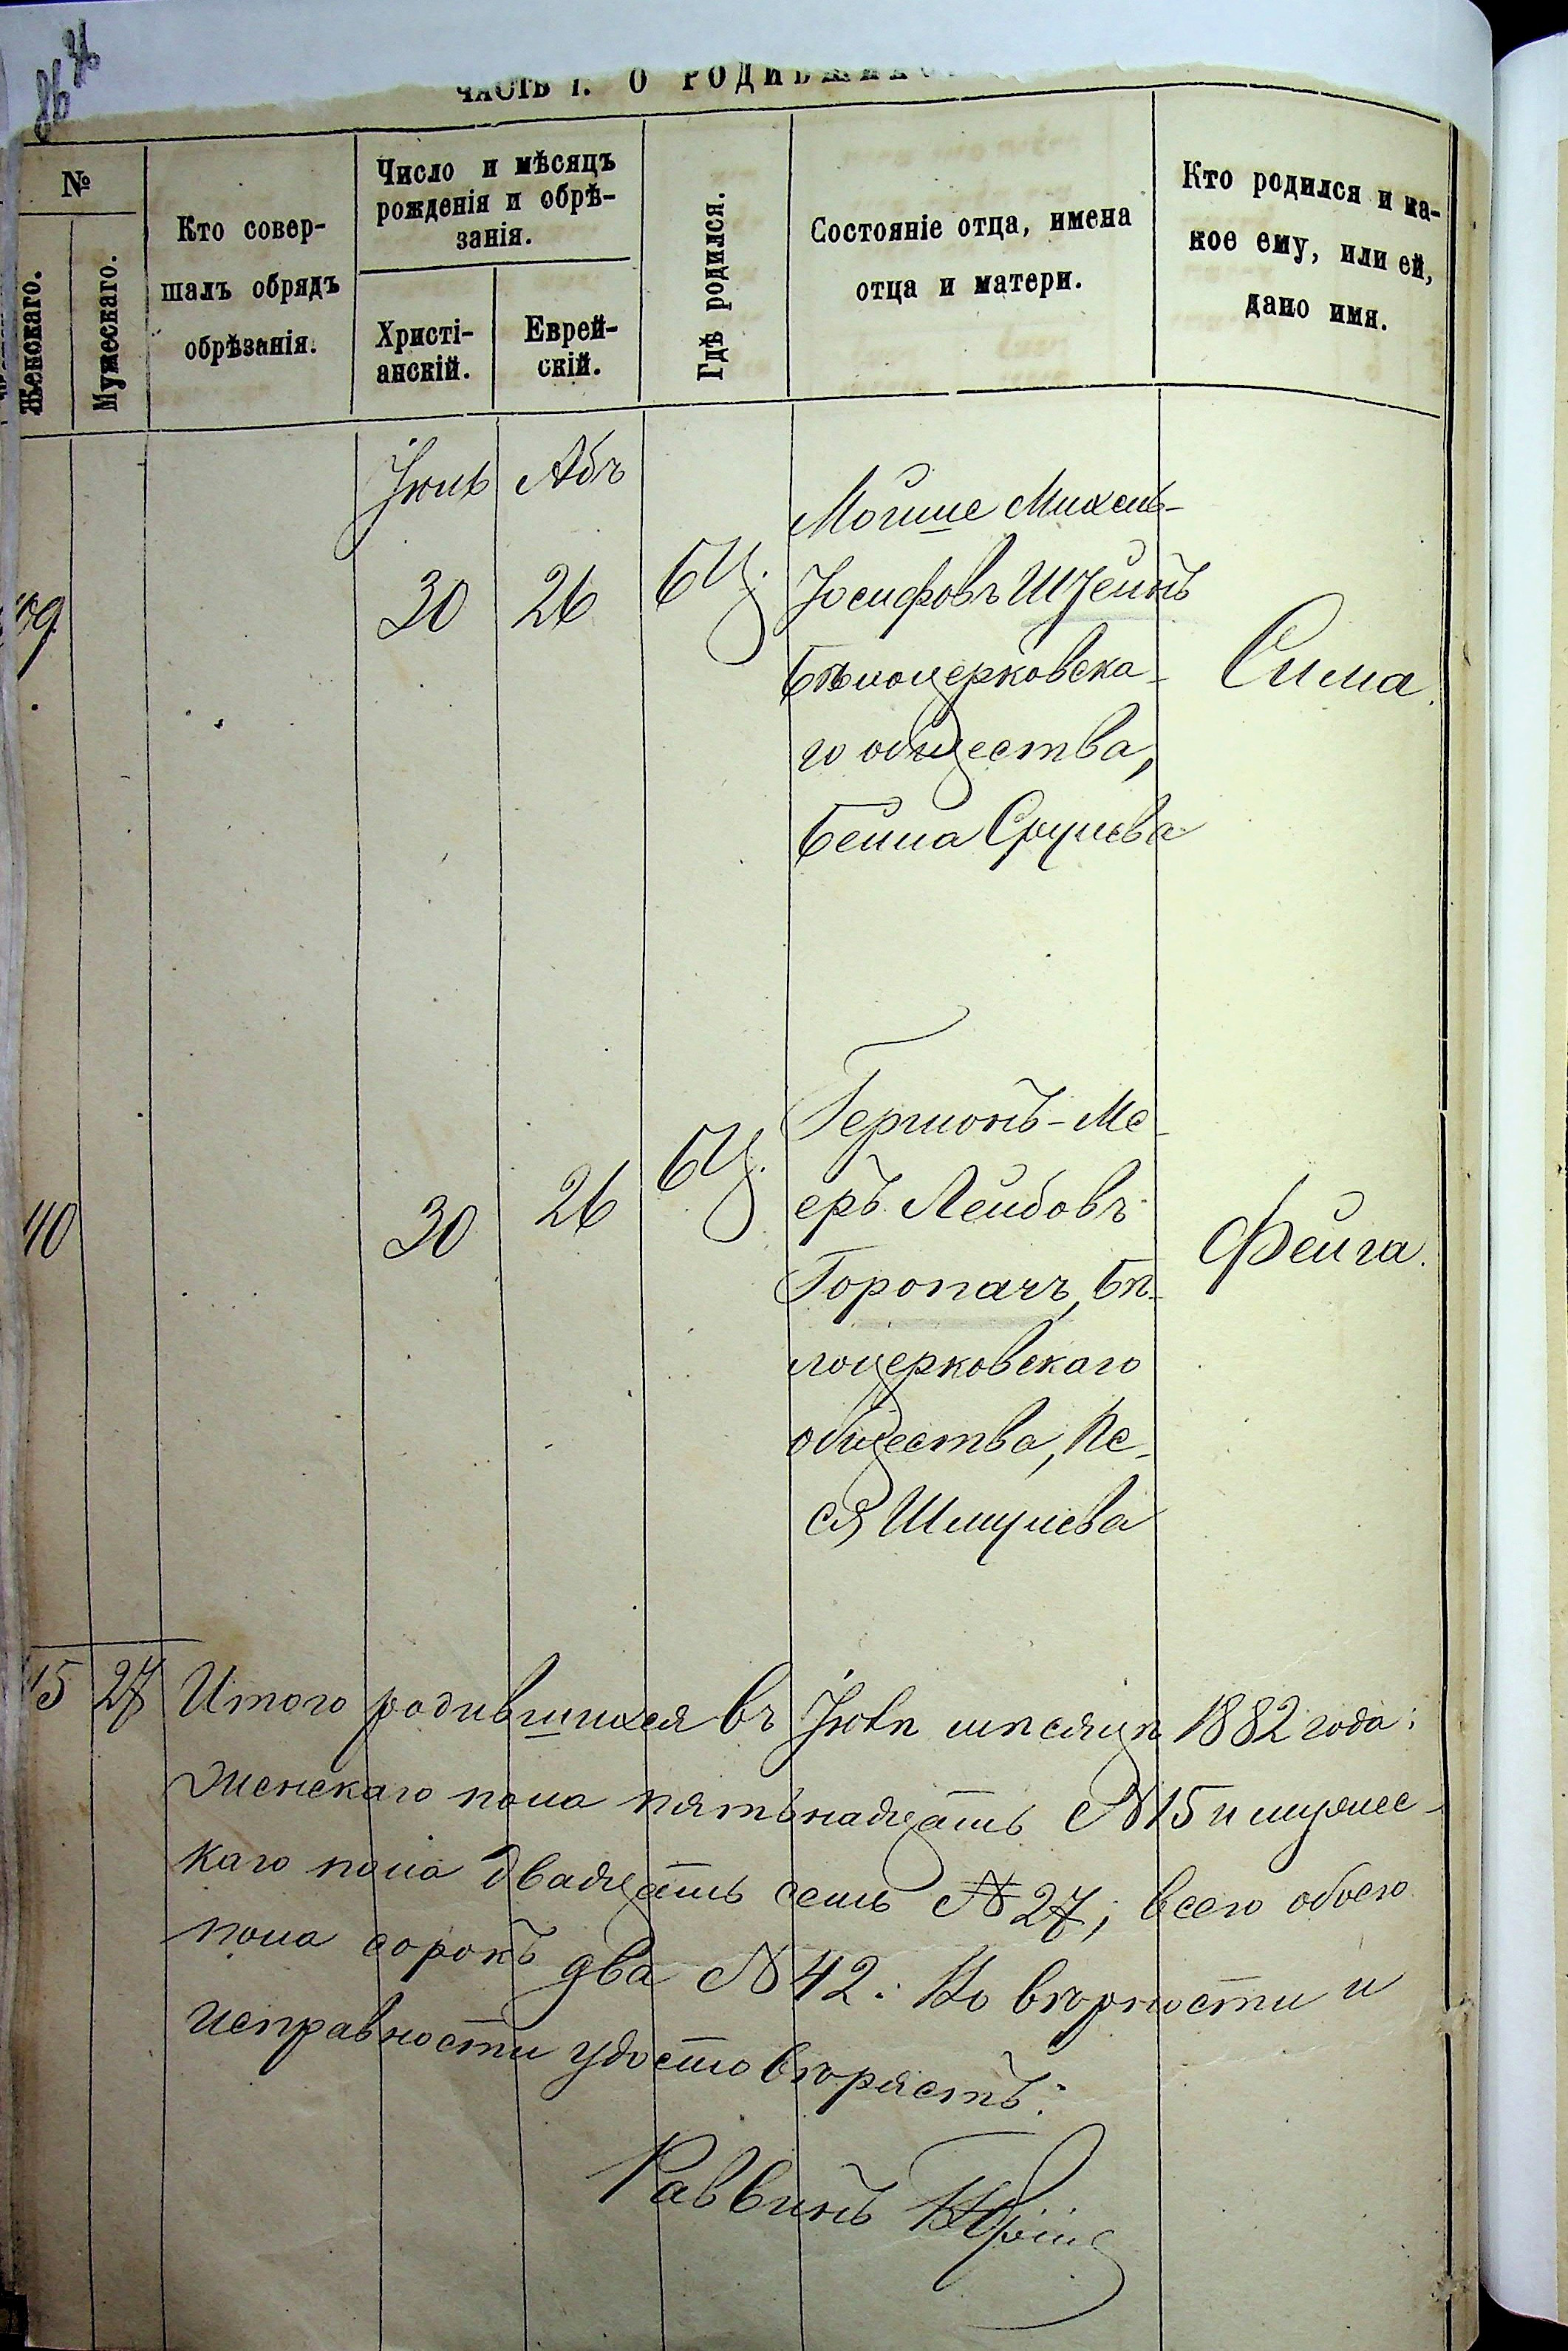 ЧАСТЬ I. О РОДИВШИХСЯ
№
Женскаго.
Мужескаго.
Кто совер-
шалъ обрядъ
обрѣзанія.
Число и мѣсяцъ
рожденія и обрѣ-
занія.
Христі-
анскій.
Еврей-
скій.
Гдѣ родился.
Состояніе отца, имена
отца и матери.
Кто родился и ка-
кое ему, или ей,
дано имя.
Іюль Абъ
30 26 БЦ.
Мойше Михель-
Іосифовъ Штейнъ
Бѣлоцерковска-
го общества,
Бейла Срулева
Сима.
40 30 26 БЦ.
Гершонъ-Ме-
еръ Лейбовъ
Горопачъ, Бѣ-
лоцерковскаго
общества, Пе-
ся Шмулева
Фейга.
15 27 Итого родившихся въ Іюлѣ мѣсяцѣ 1882 года:
Женскаго пола пятьнадцать № 15 и мужес-
каго пола двадцать семь № 27; всего обоего
пола сорокъ два № 42. Но вѣрности и
исправности удостовѣряетъ:
Раввинъ